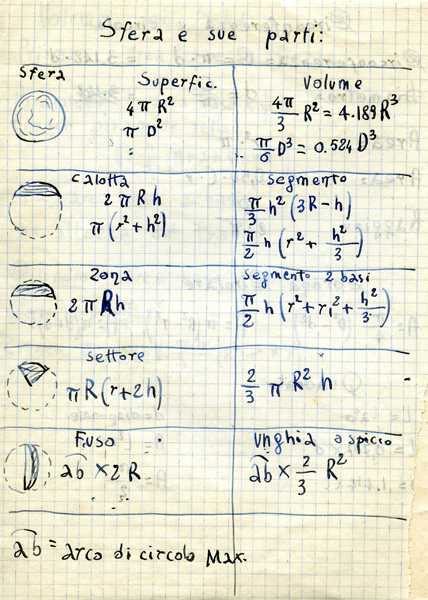 Sfera e sue parti:
Sfera
Superfic.
4π R²
π D²
Volume
4π/3 R² = 4.189R³
π/6 D³ = 0.524 D³
calotta
2 π R h
π(r²+h²)
segmento
π/3 h² (3R-h)
π/2 h (r² + h²/3)
zona
2π Rh
segmento 2 basi
π/2 h (r²+r₁²+h²/3)
settore
πR(r+2h)
2/3 π R² h
Fuso
a͡b × 2 R
unghia o spicchio
a͡b × 2/3 R²
a͡b = arco di circolo Max.